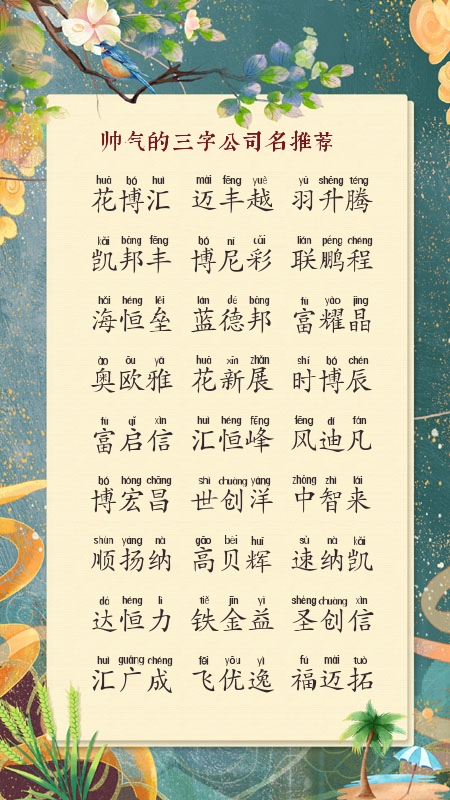 帅气的三字公司名推荐
huā bó huì mài fēng yuè yǔ shēng téng
花博汇 迈丰越 羽升腾
kǎi bāng fēng bó ní cǎi lián péng chéng
凯邦丰 博尼彩 联鹏程
hǎi héng lěi lán dé bāng fù yào jīng
海恒垒 蓝德邦 富耀晶
ào ōu yǎ huā xīn zhǎn shí bó chén
奥欧雅 花新展 时博辰
fù qǐ xìn huì héng fēng fēng dí fán
富启信 汇恒峰 风迪凡
bó hóng chāng shì chuàng yáng zhōng zhì lái
博宏昌 世创洋 中智来
shùn yáng nà gāo bèi huī sù nà kǎi
顺扬纳 高贝辉 速纳凯
dá héng lì tiě jīn yì shèng chuàng xìn
达恒力 铁金益 圣创信
huì guǎng chéng fēi yōu yì fú mài tuò
汇广成 飞优逸 福迈拓